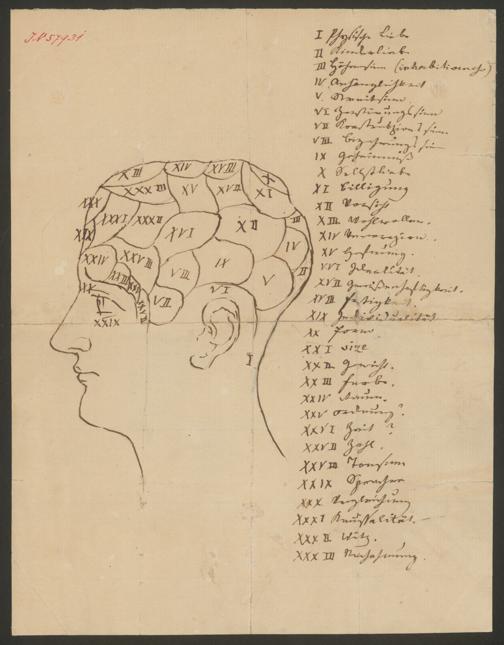 I.N 57931
I Physische Liebe
II Kinderliebe
III Höhensinn (inhabitiveness)
IV Anhänglichkeit
V. Streitsinn
VI Zerstörungssinn
VII Konstruktionssinn
VIII Begehrungssinn
IX Geheimniß
X Selbstliebe
XI Billigung
XII Vorsicht
XIII Wohlwollen.
XIV Veneration.
XV Hofnung.
XVI Idealität.
XVII Gewissenhaftigkeit.
XVIII Festigkeit.
XIX Individualität
XX Form.
XXI size
XXII Gewicht.
XXIII Farbe.
XXIV Raum.
XXV Ordnung?
XXVI Zeit?
XXVII Zahl.
XXVIII Tonsinn
XXIX Sprache
XXX Vergleichung
XXXI Kausalität.
XXXII Witz.
XXXIII Nachahmung.
XIII
XIV
XVIII
X
XXXIII
XV
XVII
XI
XXX
XXXI
XXXII
XVI
XII
III
XIX
IV
XXIV
XXVIII
VIII
IX
V
II
VII
VI
XXIX
I